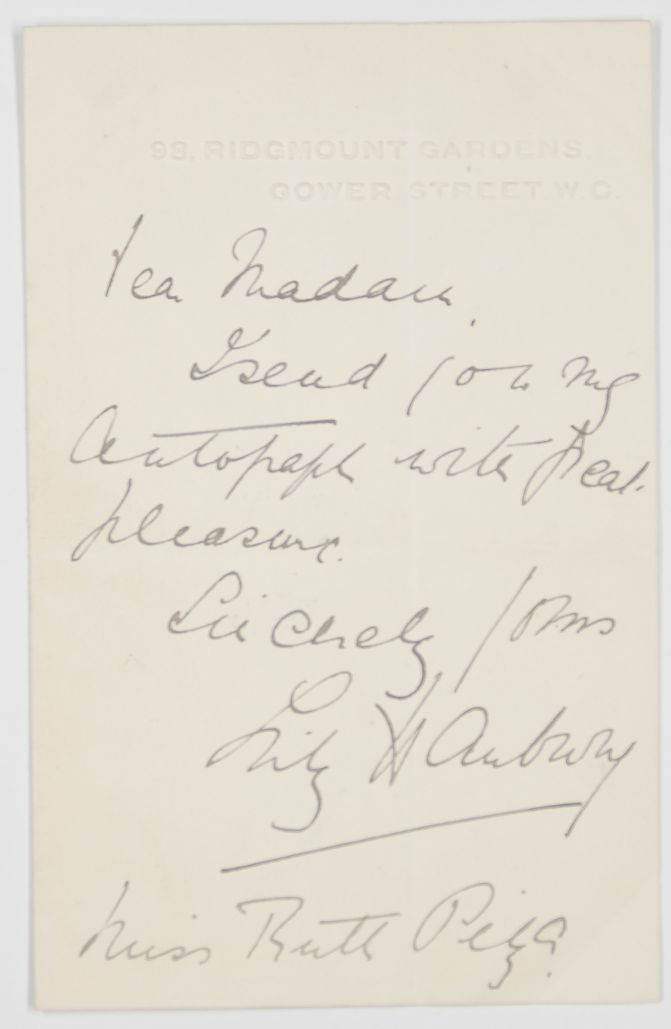 98, RIDGMOUNT GARDENS,
GOWER STREET W.C.
Dear Madam,
I send you my
Autograph with great
pleasure.
Sincerely yours
Lily Hanbury
Miss Ruth